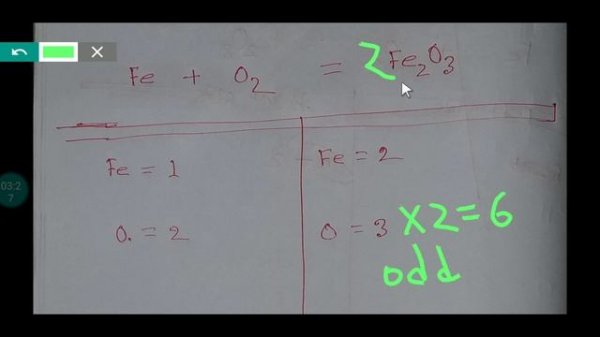 Fe + O2 = 2 Fe2O3
Fe = 1
Fe = 2
O. = 2
O = 3 X2=6
odd
03:2
7